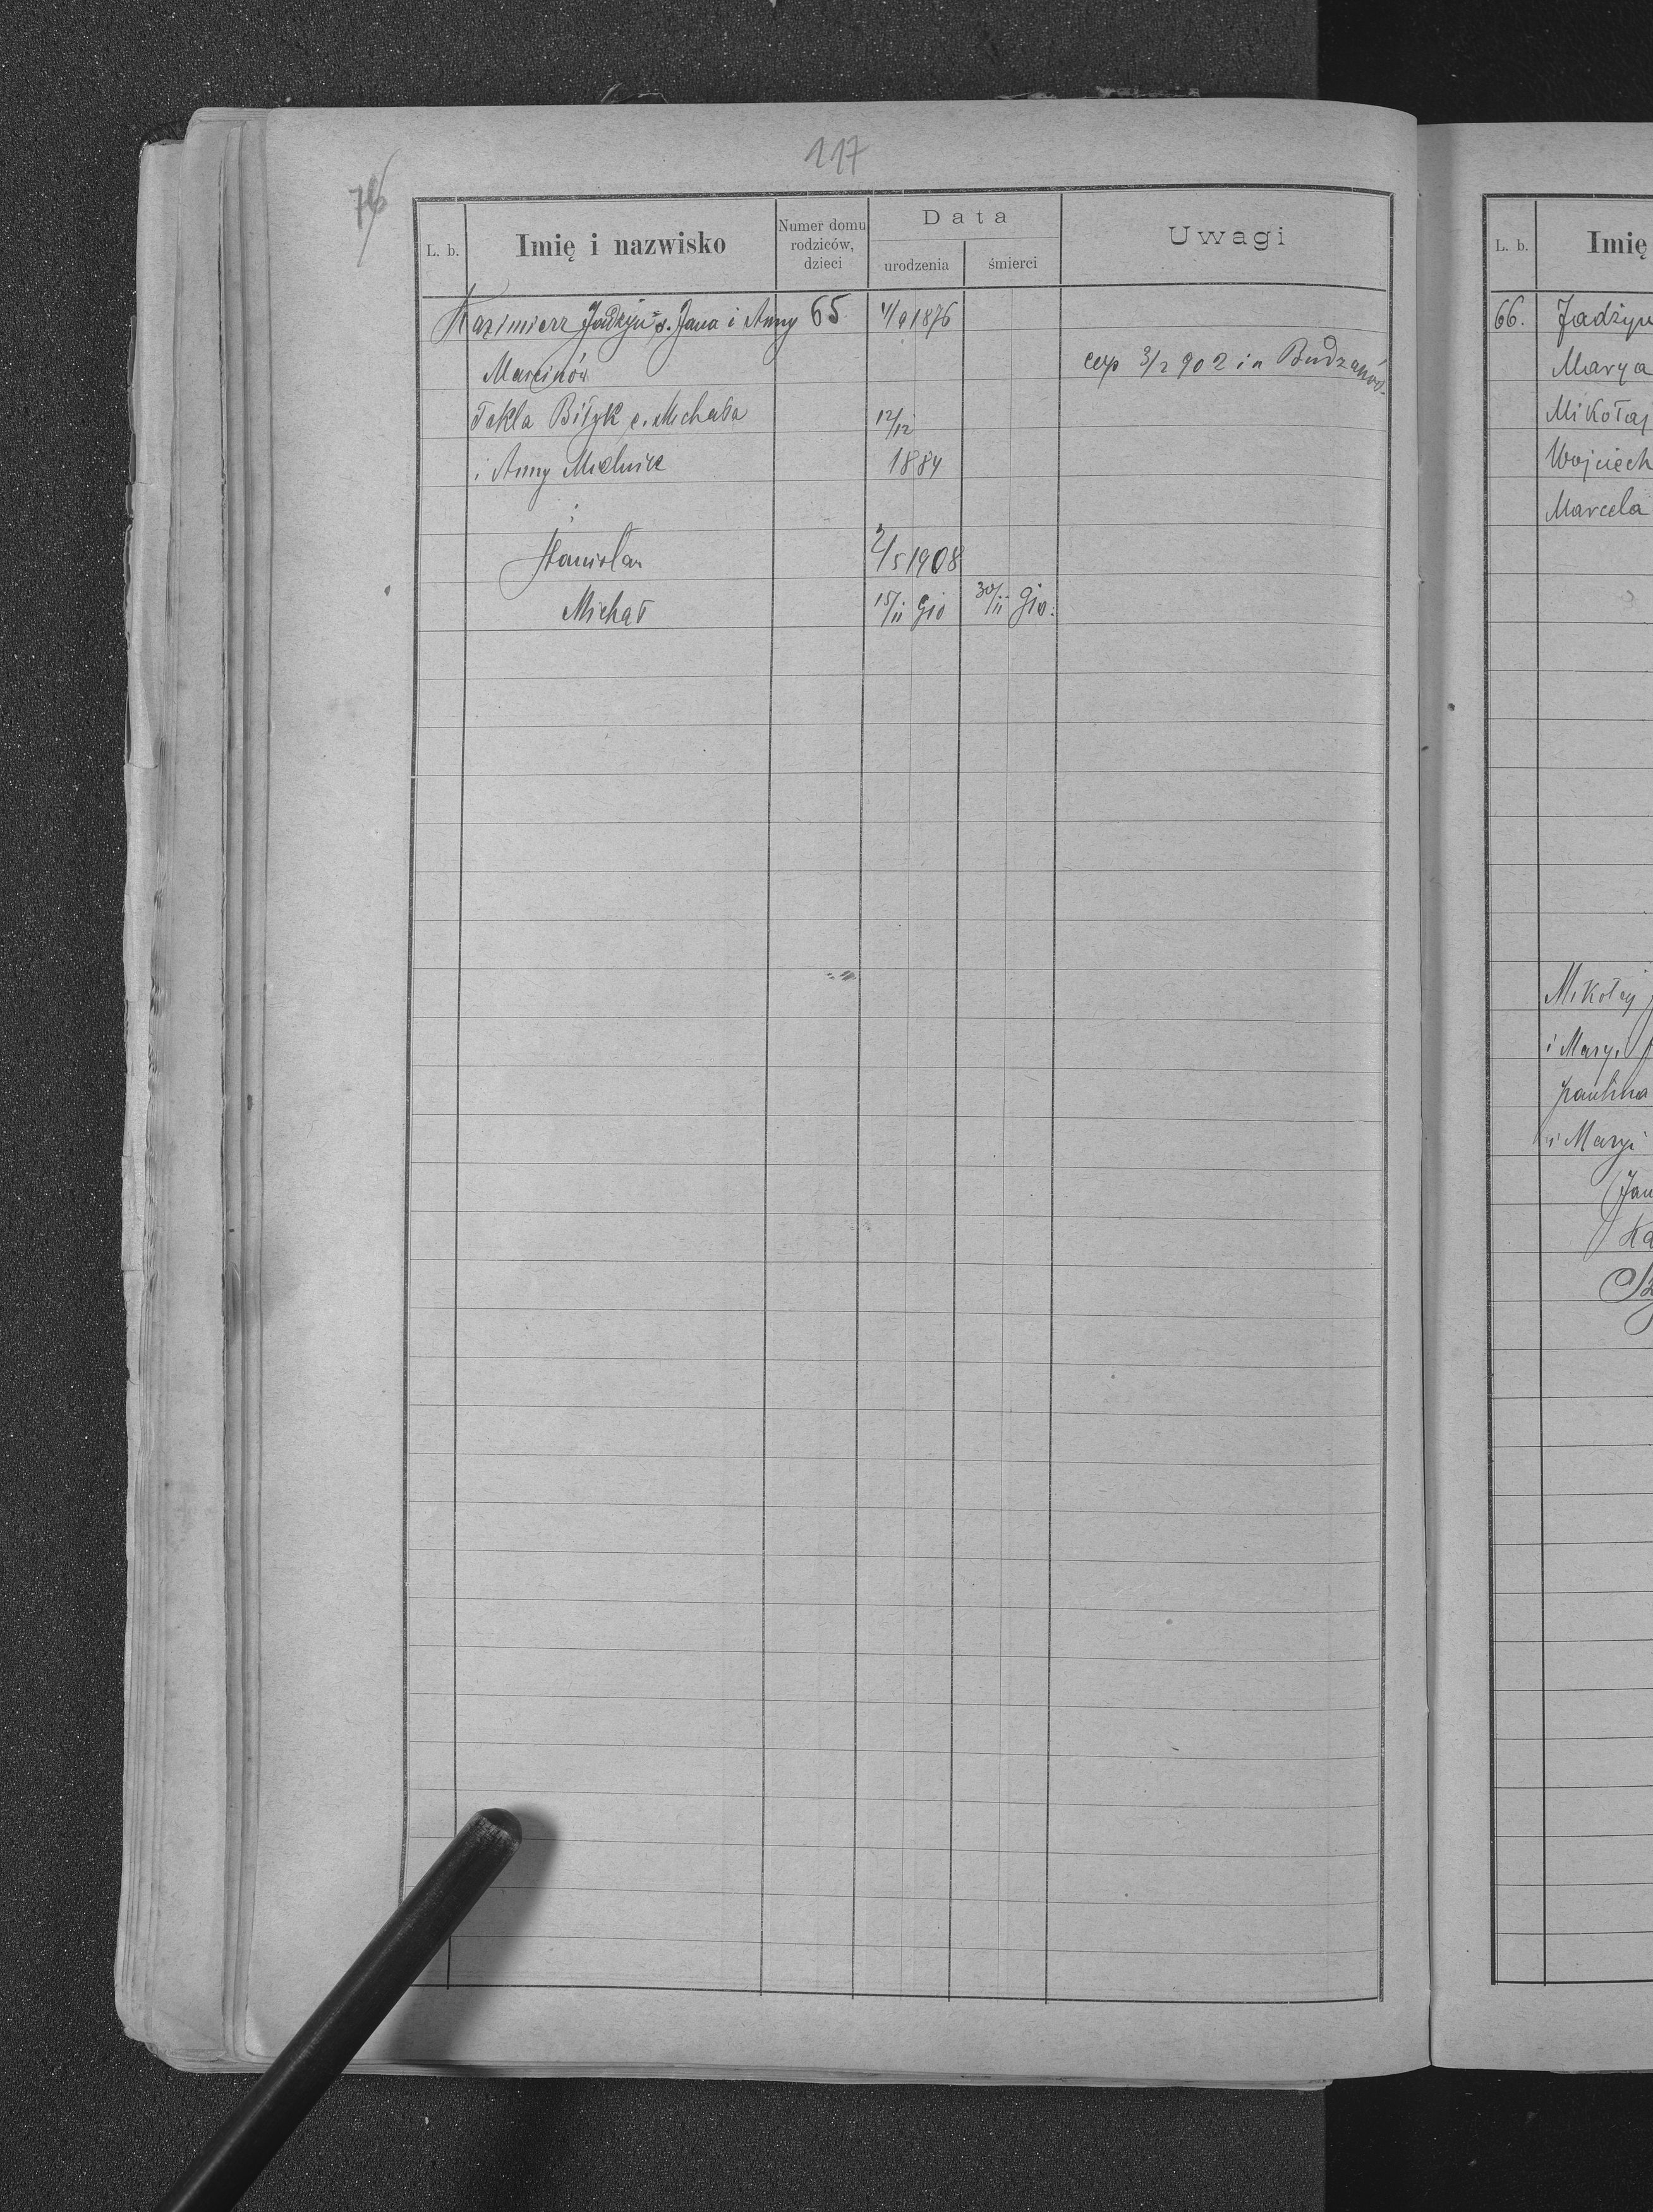 117
L. b. Imię i nazwisko Numer domu rodziców, dzieci Data urodzenia śmierci Uwagi
Kazimierz s. Jana i Anny 65 4/9 1876
Marcinów cop 3/2 902 in Budzanów
Tekla Biłyk c. Michała 12/12
i Anny Melnik 1884
Stanisław 2/5 1908
Michał 15/11 910 30/11 910.
L. b. Imię
66.
Marya
Mikołaj
Wojciech
Marcela
Mikołaj
i Maryi
Paulina
i Maryi
Jan